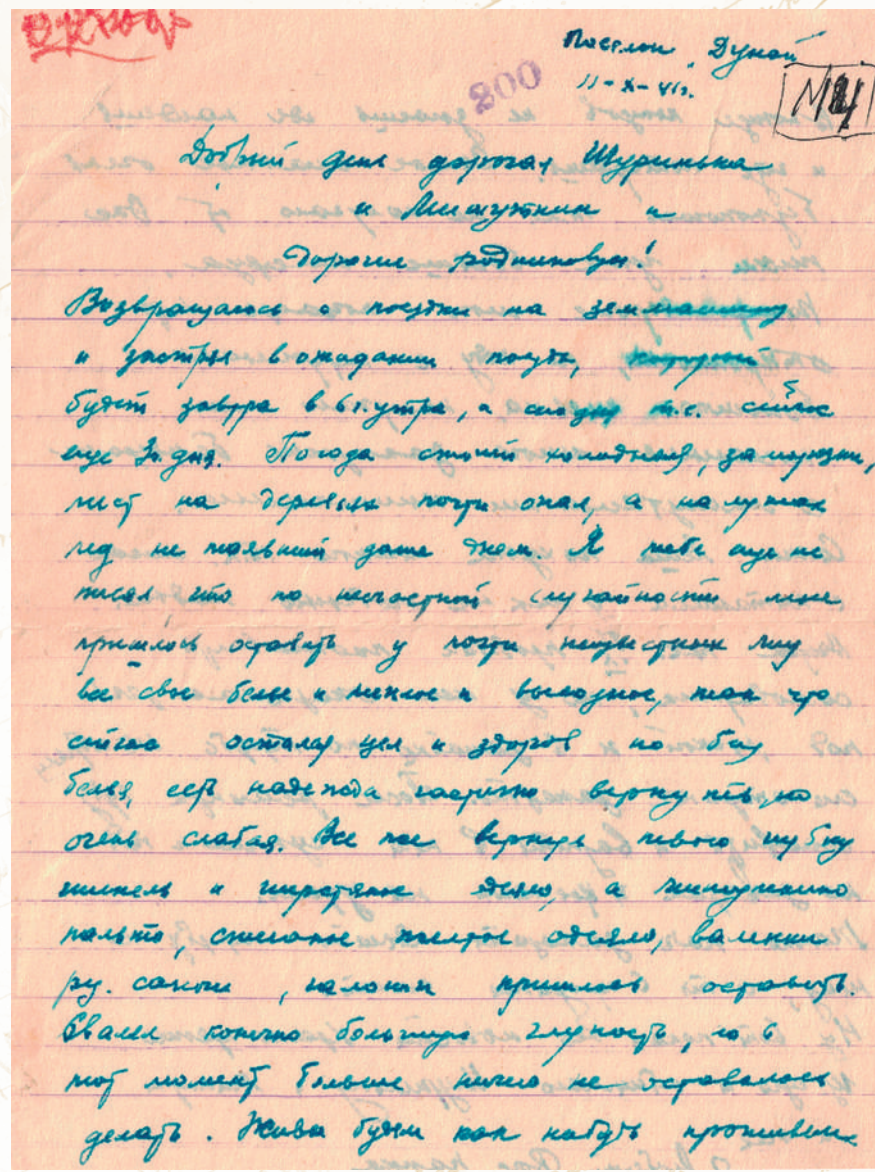 Поселок "Дунай"
11-X-41г.
200
Добрый день дорогая Шуринька
и Мишуткин и
дорогие родниковцы!
Возвращаюсь с поездки на
и застрял в ожидании поезда, который
будет завтра в 6 г. утра, а сегодня т.с. сейчас
еще 3 г. дня. Погода стоит холодная, заморозки,
лист на деревьях почти опал, а на лужах
лед не таявший даже днем. Я тебе еще не
писал что по несчастной случайности мне
пришлось оставить у почти неизвестных лиц
все свое белье и теплое и выходное, так что
сейчас остался цел и здоров но без
белья, есть надежда частично вернуть его, но
очень слабая. Все же вернуть шубку
шинель и шерстяное одеяло, а
пальто, стеганое теплое одеяло, валенки
галоши пришлось оставить.
Свалял конечно большую глупость, но в
тот момент больше ничего не оставалось
делать. Живы будем как нибудь проживем